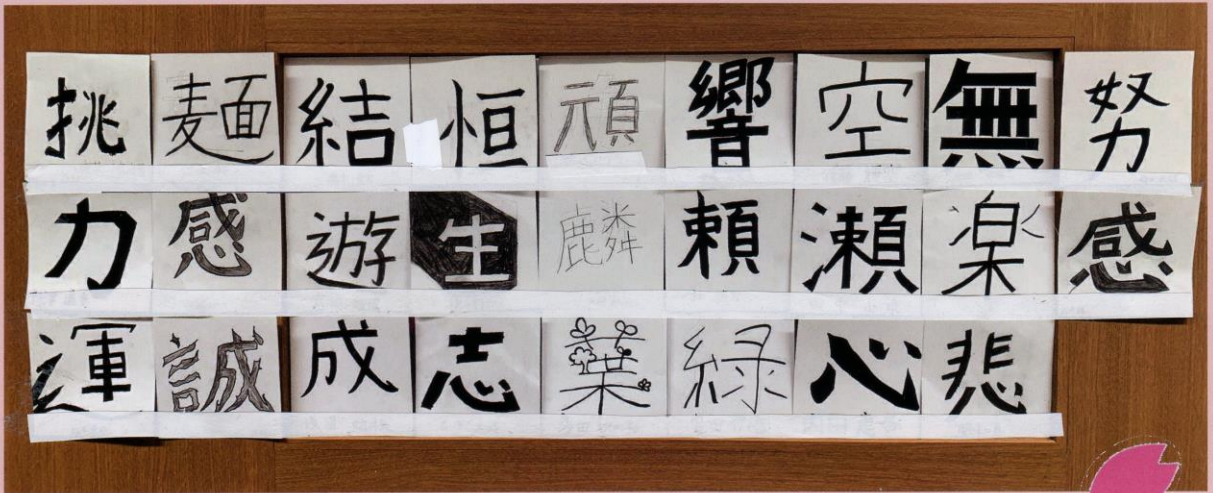 挑麺結恒頑響空無努
力感遊生麟頼瀬楽感
運誠成志葉緑心悲